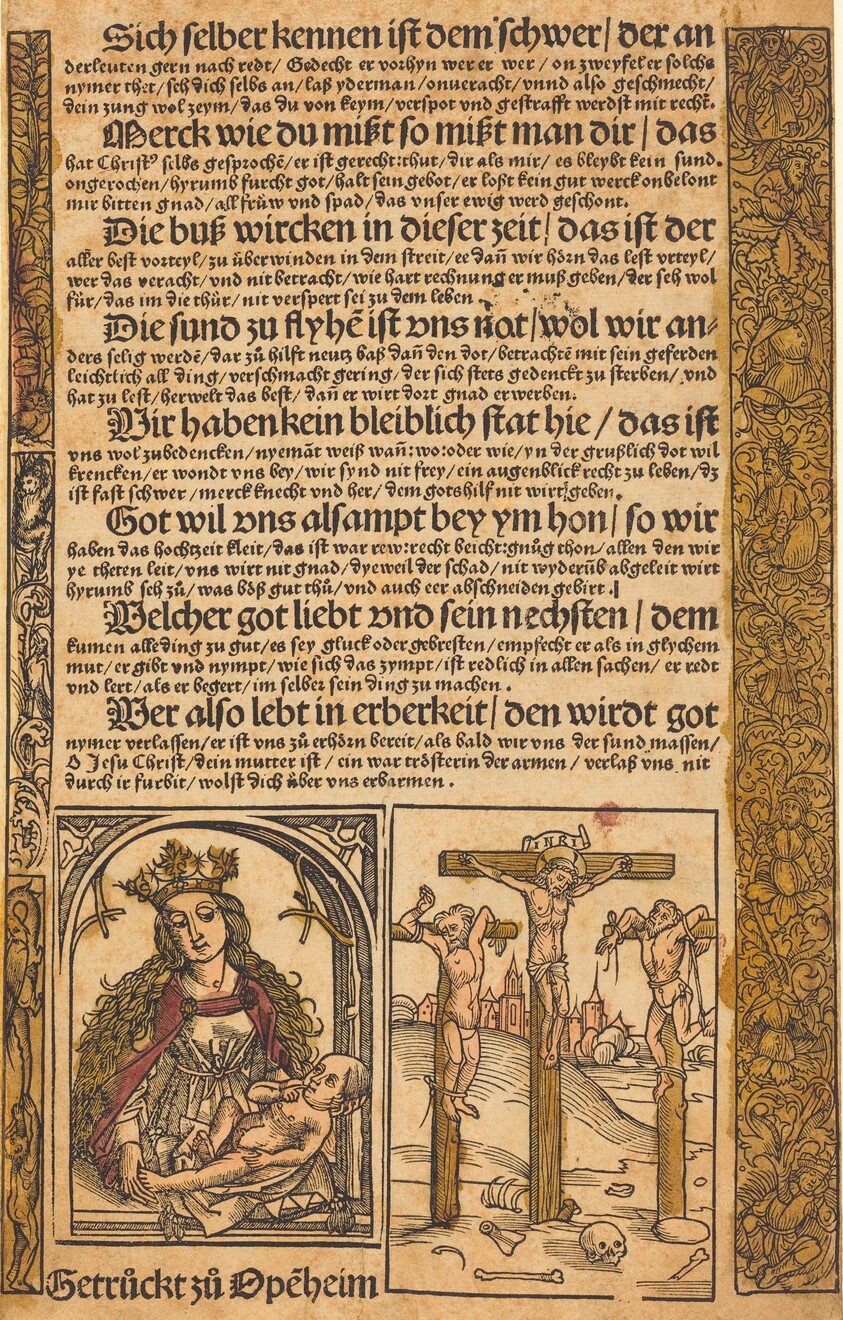 Sich selber kennen ist dem schwer/ der an
derleuten gern nach redt/ Gedecht er vorhyn wer er wer/ on zweyfel er solchs
nymer thet/ seh dich selbs an/ laß yderman/ onveracht/ vnnd also geschmecht/
dein zung wol zeym/ das du von keym/ verspot vnd gestrafft werdst mit recht.
Merck wie du mißt so mißt man dir/ das
hat Christꝰ selbs gesprochē/ er ist gerecht: thut/ dir als mir/ es bleybt kein sund.
ongerochen/ hyrumb furcht got/ halt sein gebot/ er loßt kein gut werck onbelont
mir bitten gnad/ all früw vnd spad/ das vnser ewig werd geschont.
Die buß wircken in dieser zeit/ das ist der
aller best vorteyl/ zu überwinden in dem streit/ ee dañ wir hörn das lest vrteyl/
wer das veracht/ vnd nit betracht/ wie hart rechnung er muß geben/ der seh wol
für/ das im die thür/ nit verspert sei zu dem leben.
Die sund zu flyhē ist vns not/ wol wir an⸗
ders selig werdē/ dar zů hilft neutz baß dañ den dot/ betrachtē mit sein geferden
leichtlich all ding/ verschmacht gering/ der sich stets gedenckt zu sterben/ vnd
hat zu lest/ herwelt das best/ dañ er wirt dort gnad erwerben.
Wir haben kein bleiblich stat hie/ das ist
vns wol zubedencken/ nyemāt weiß wañ: wo: oder wie/ yn der grußlich dot wil
krencken/ er wondt vns bey/ wir synd nit frey/ ein augenblick recht zu leben/ dz
ist fast schwer/ merck knecht vnd her/ dem gots hilf nit wirt geben.
Got wil vns alsampt bey ym hon/ so wir
haben das hochtzeit kleit/ das ist war rew: recht beicht: gnůg thon/ allen den wir
ye theten leit/ vns wirt nit gnad/ dyeweil der schad/ nit wyderüb abgeleit wirt
hyrumb seh zů/ was böß gut thů/ vnd auch eer abschneiden gebirt.
Welcher got liebt vnd sein nechsten/ dem
kumen alle ding zu gut/ es sey gluck oder gebresten/ empfecht er als in glychem
mut/ er gibt vnd nympt/ wie sich das zympt/ ist redlich in allen sachen/ er redt
vnd lert/ als er begert/ im selber sein ding zu machen.
Wer also lebt in erberkeit/ den wirdt got
nymer verlassen/ er ist vns zů erhörn bereit/ als bald wir vns der sund massen/
O Jesu Christ/ dein mutter ist/ ein war trösterin der armen/ verlaß vns nit
durch ir furbit/ wolst dich über vns erbarmen.
INRI
Getrůckt zů Opēheim